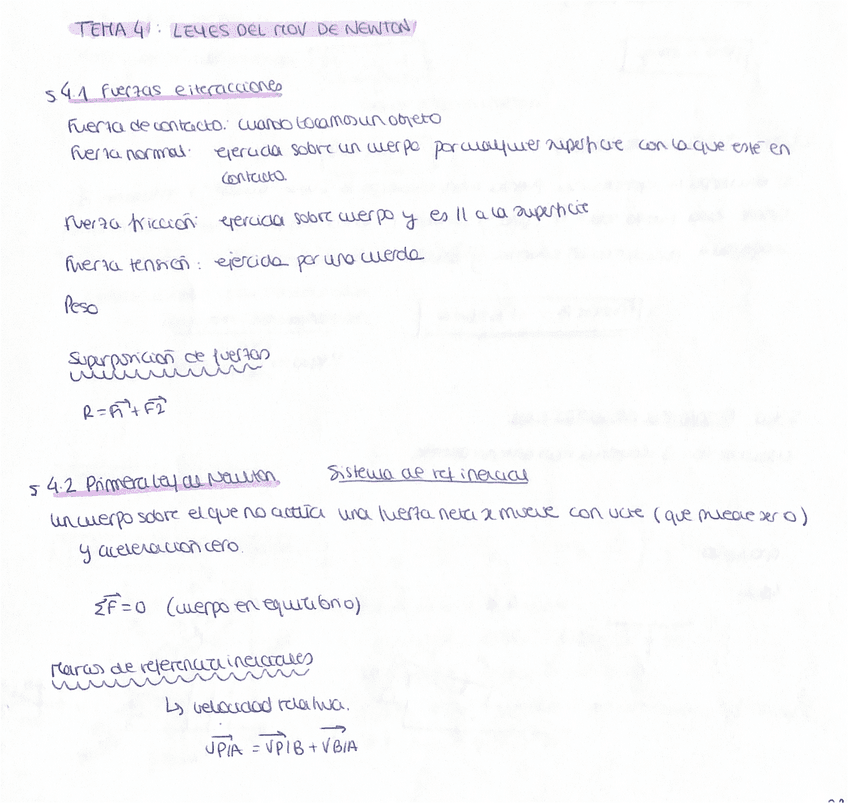 TEMA 4 : LEYES DEL MOV DE NEWTON
5 4.1 Fuerzas e iteracciones
Fuerza de contacto: cuando tocamos un objeto
Fuerza normal: ejercida sobre un cuerpo por cualquier superficie con la que esté en
contacto.
Fuerza fricción: ejercida sobre cuerpo y es // a la superficie
Fuerza tensión: ejercida por una cuerda
Peso
Superposición de fuerzas
R = F1 + F2
5 4.2 Primera ley de Newton. Sistema de ref inercial
un cuerpo sobre el que no actúa una fuerza neta se mueve con vcte (que puede ser 0)
y aceleración cero.
ΣF = 0 (cuerpo en equilibrio)
Marcos de referencia inerciales
↳ velocidad relativa.
VP/A = VP/B + VB/A